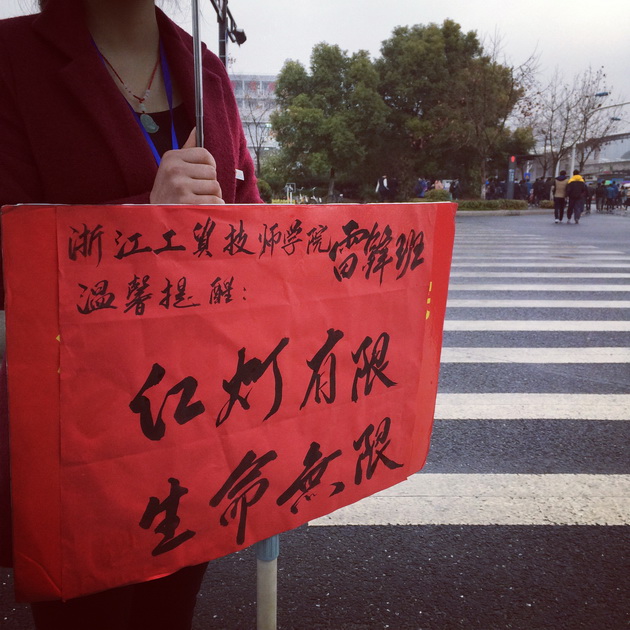 浙江工贸技师学院雷锋班
温馨提醒：
红灯有限
生命無限